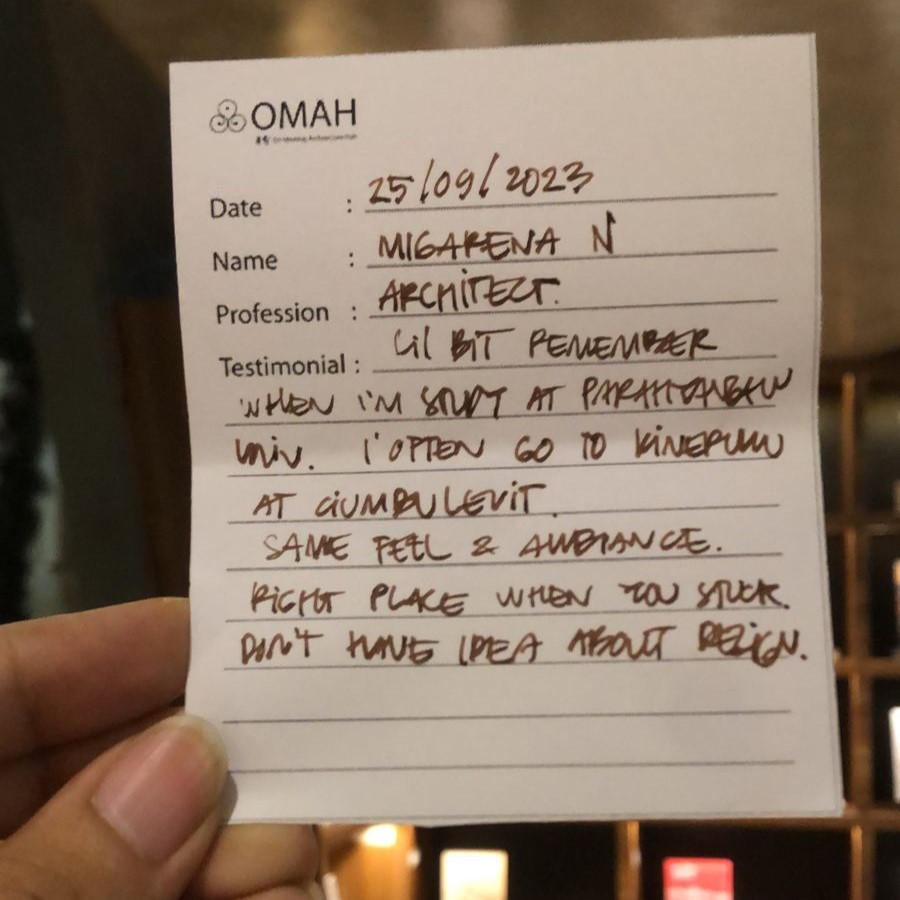 OMAH
Date : 25/09/2023
Name : MIGARENA N
Profession : ARCHITECT.
Testimonial : Lil BIT REMEMBER
WHEN I'M STUDY AT PARAHYANGAN
UNIV. I OFTEN GO TO KINERUKU
AT CIUMBULEUIT.
SAME FEEL & AMBIANCE.
RIGHT PLACE WHEN YOU STUCK.
DON'T HAVE IDEA ABOUT DESIGN.